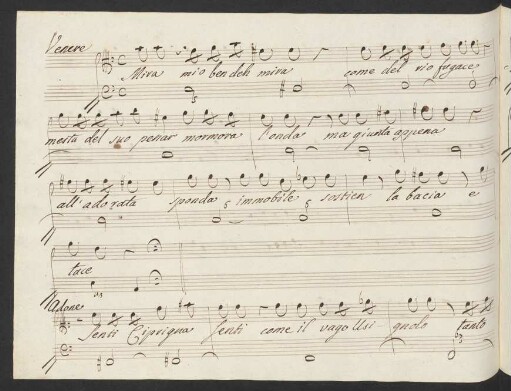 Venere
Mira mio ben deh mira come del rio fugace
mesta del suo penar mormora l'onda ma giunta appena
all'adorata sponda immobile sostien la bacia e
tace
Adone
Senti Ciprigna senti come il vago Usignolo tanto